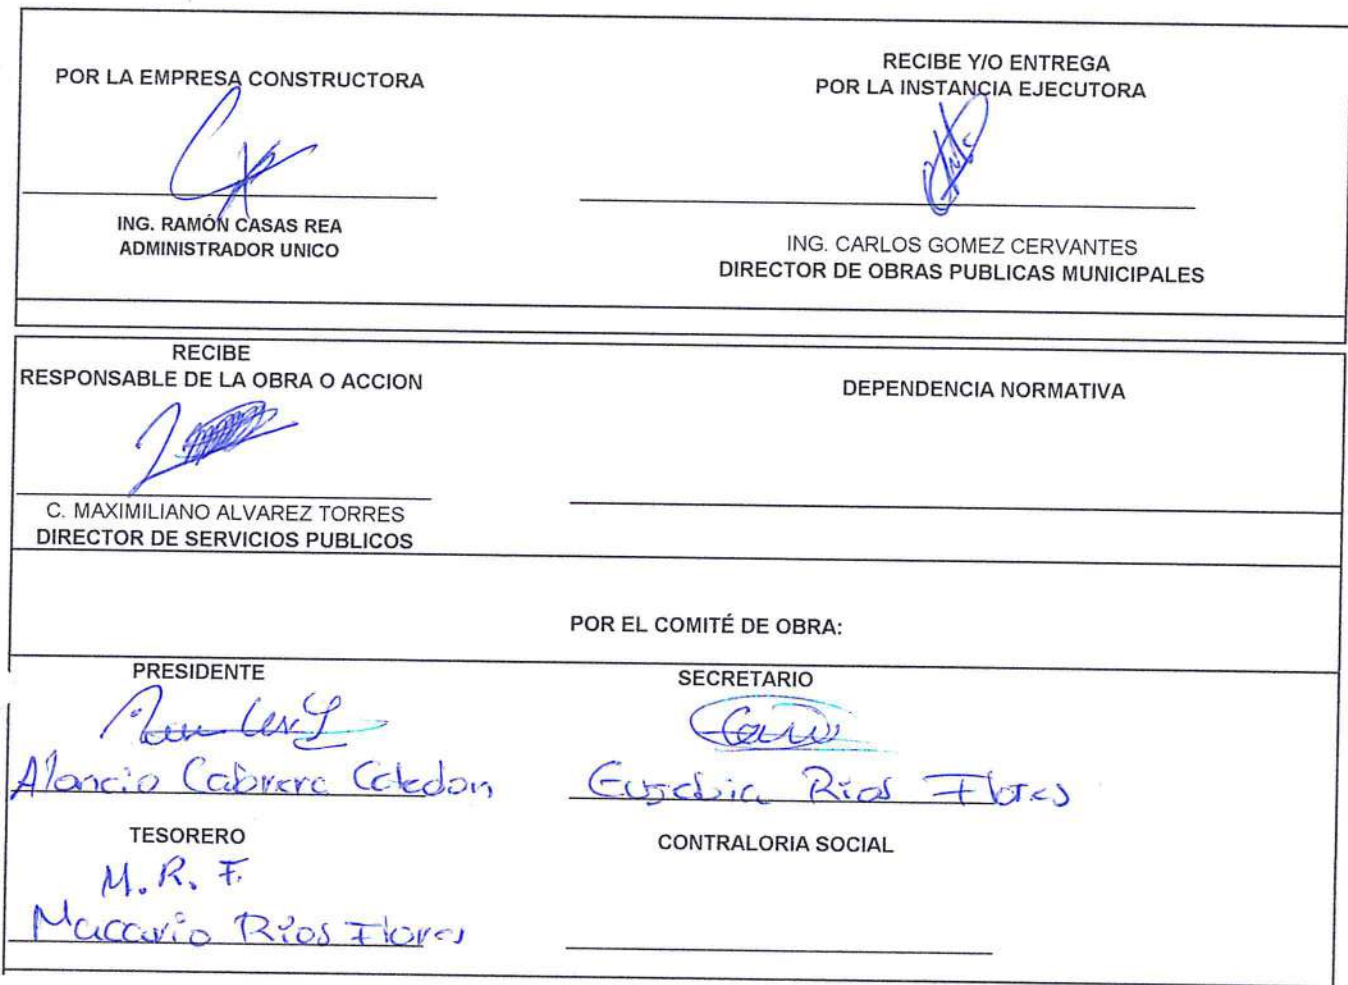 POR LA EMPRESA CONSTRUCTORA
ING. RAMÓN CASAS REA
ADMINISTRADOR UNICO
RECIBE Y/O ENTREGA
POR LA INSTANCIA EJECUTORA
ING. CARLOS GOMEZ CERVANTES
DIRECTOR DE OBRAS PUBLICAS MUNICIPALES
RECIBE
RESPONSABLE DE LA OBRA O ACCION
C. MAXIMILIANO ALVAREZ TORRES
DIRECTOR DE SERVICIOS PUBLICOS
DEPENDENCIA NORMATIVA
POR EL COMITÉ DE OBRA:
PRESIDENTE
Cabrera
SECRETARIO
Eusebia Rios Flores
TESORERO
M. R. F.
Macario Rios Flores
CONTRALORIA SOCIAL